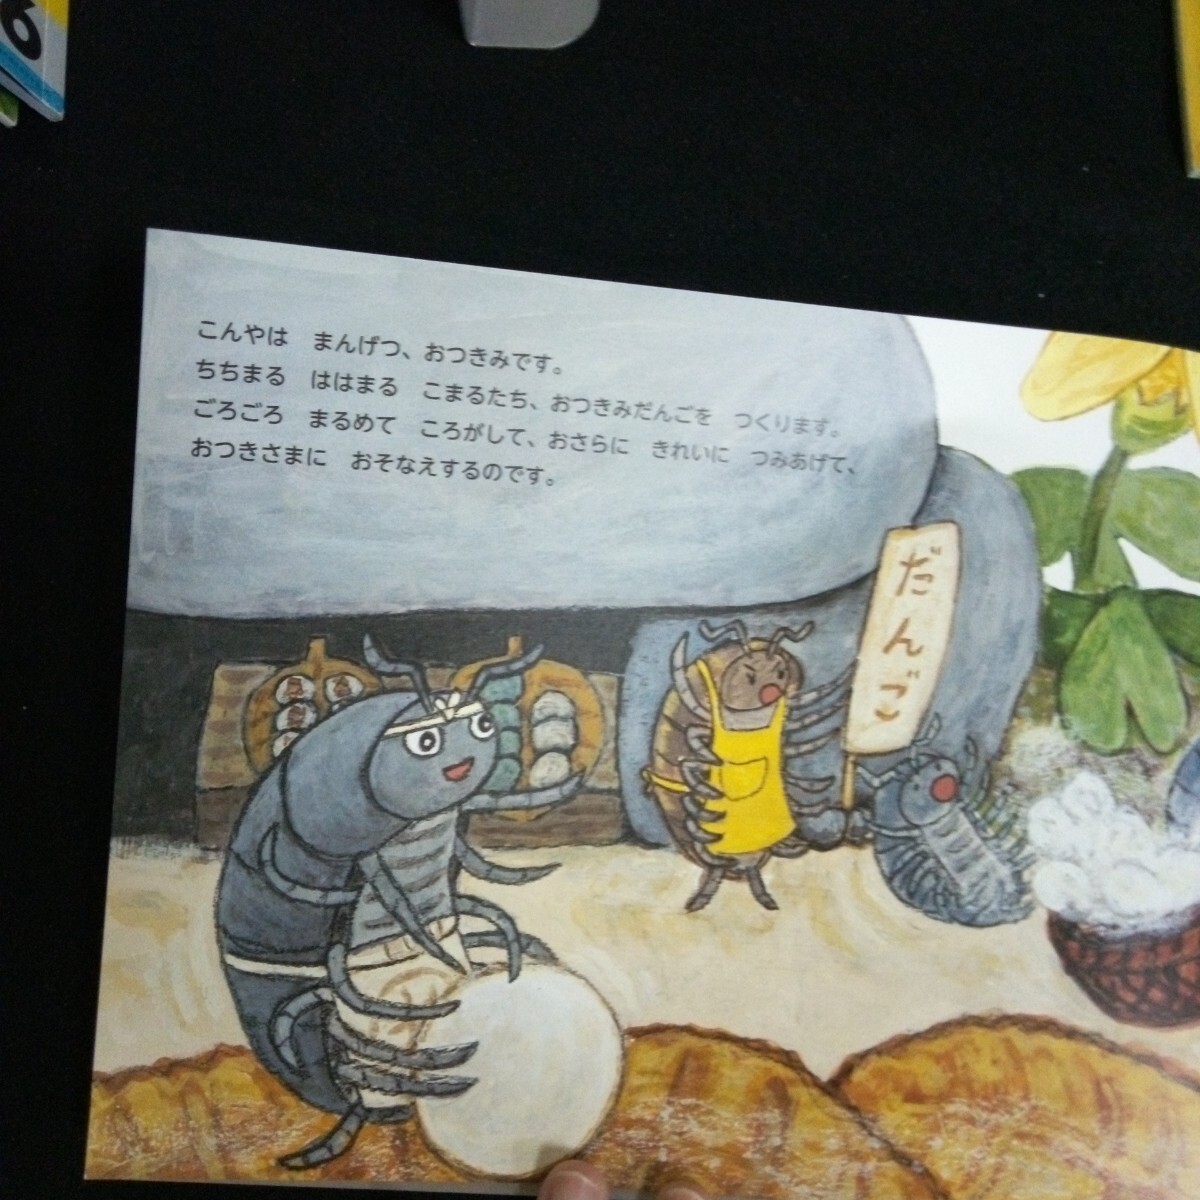 こんやは　まんげつ、おつきみです。
ちちまる　ははまる　こまるたち、おつきみだんごを　つくります。
ごろごろ　まるめて　ころがして、おさらに　きれいに　つみあげて、
おつきさまに　おそなえするのです。
だんご
6